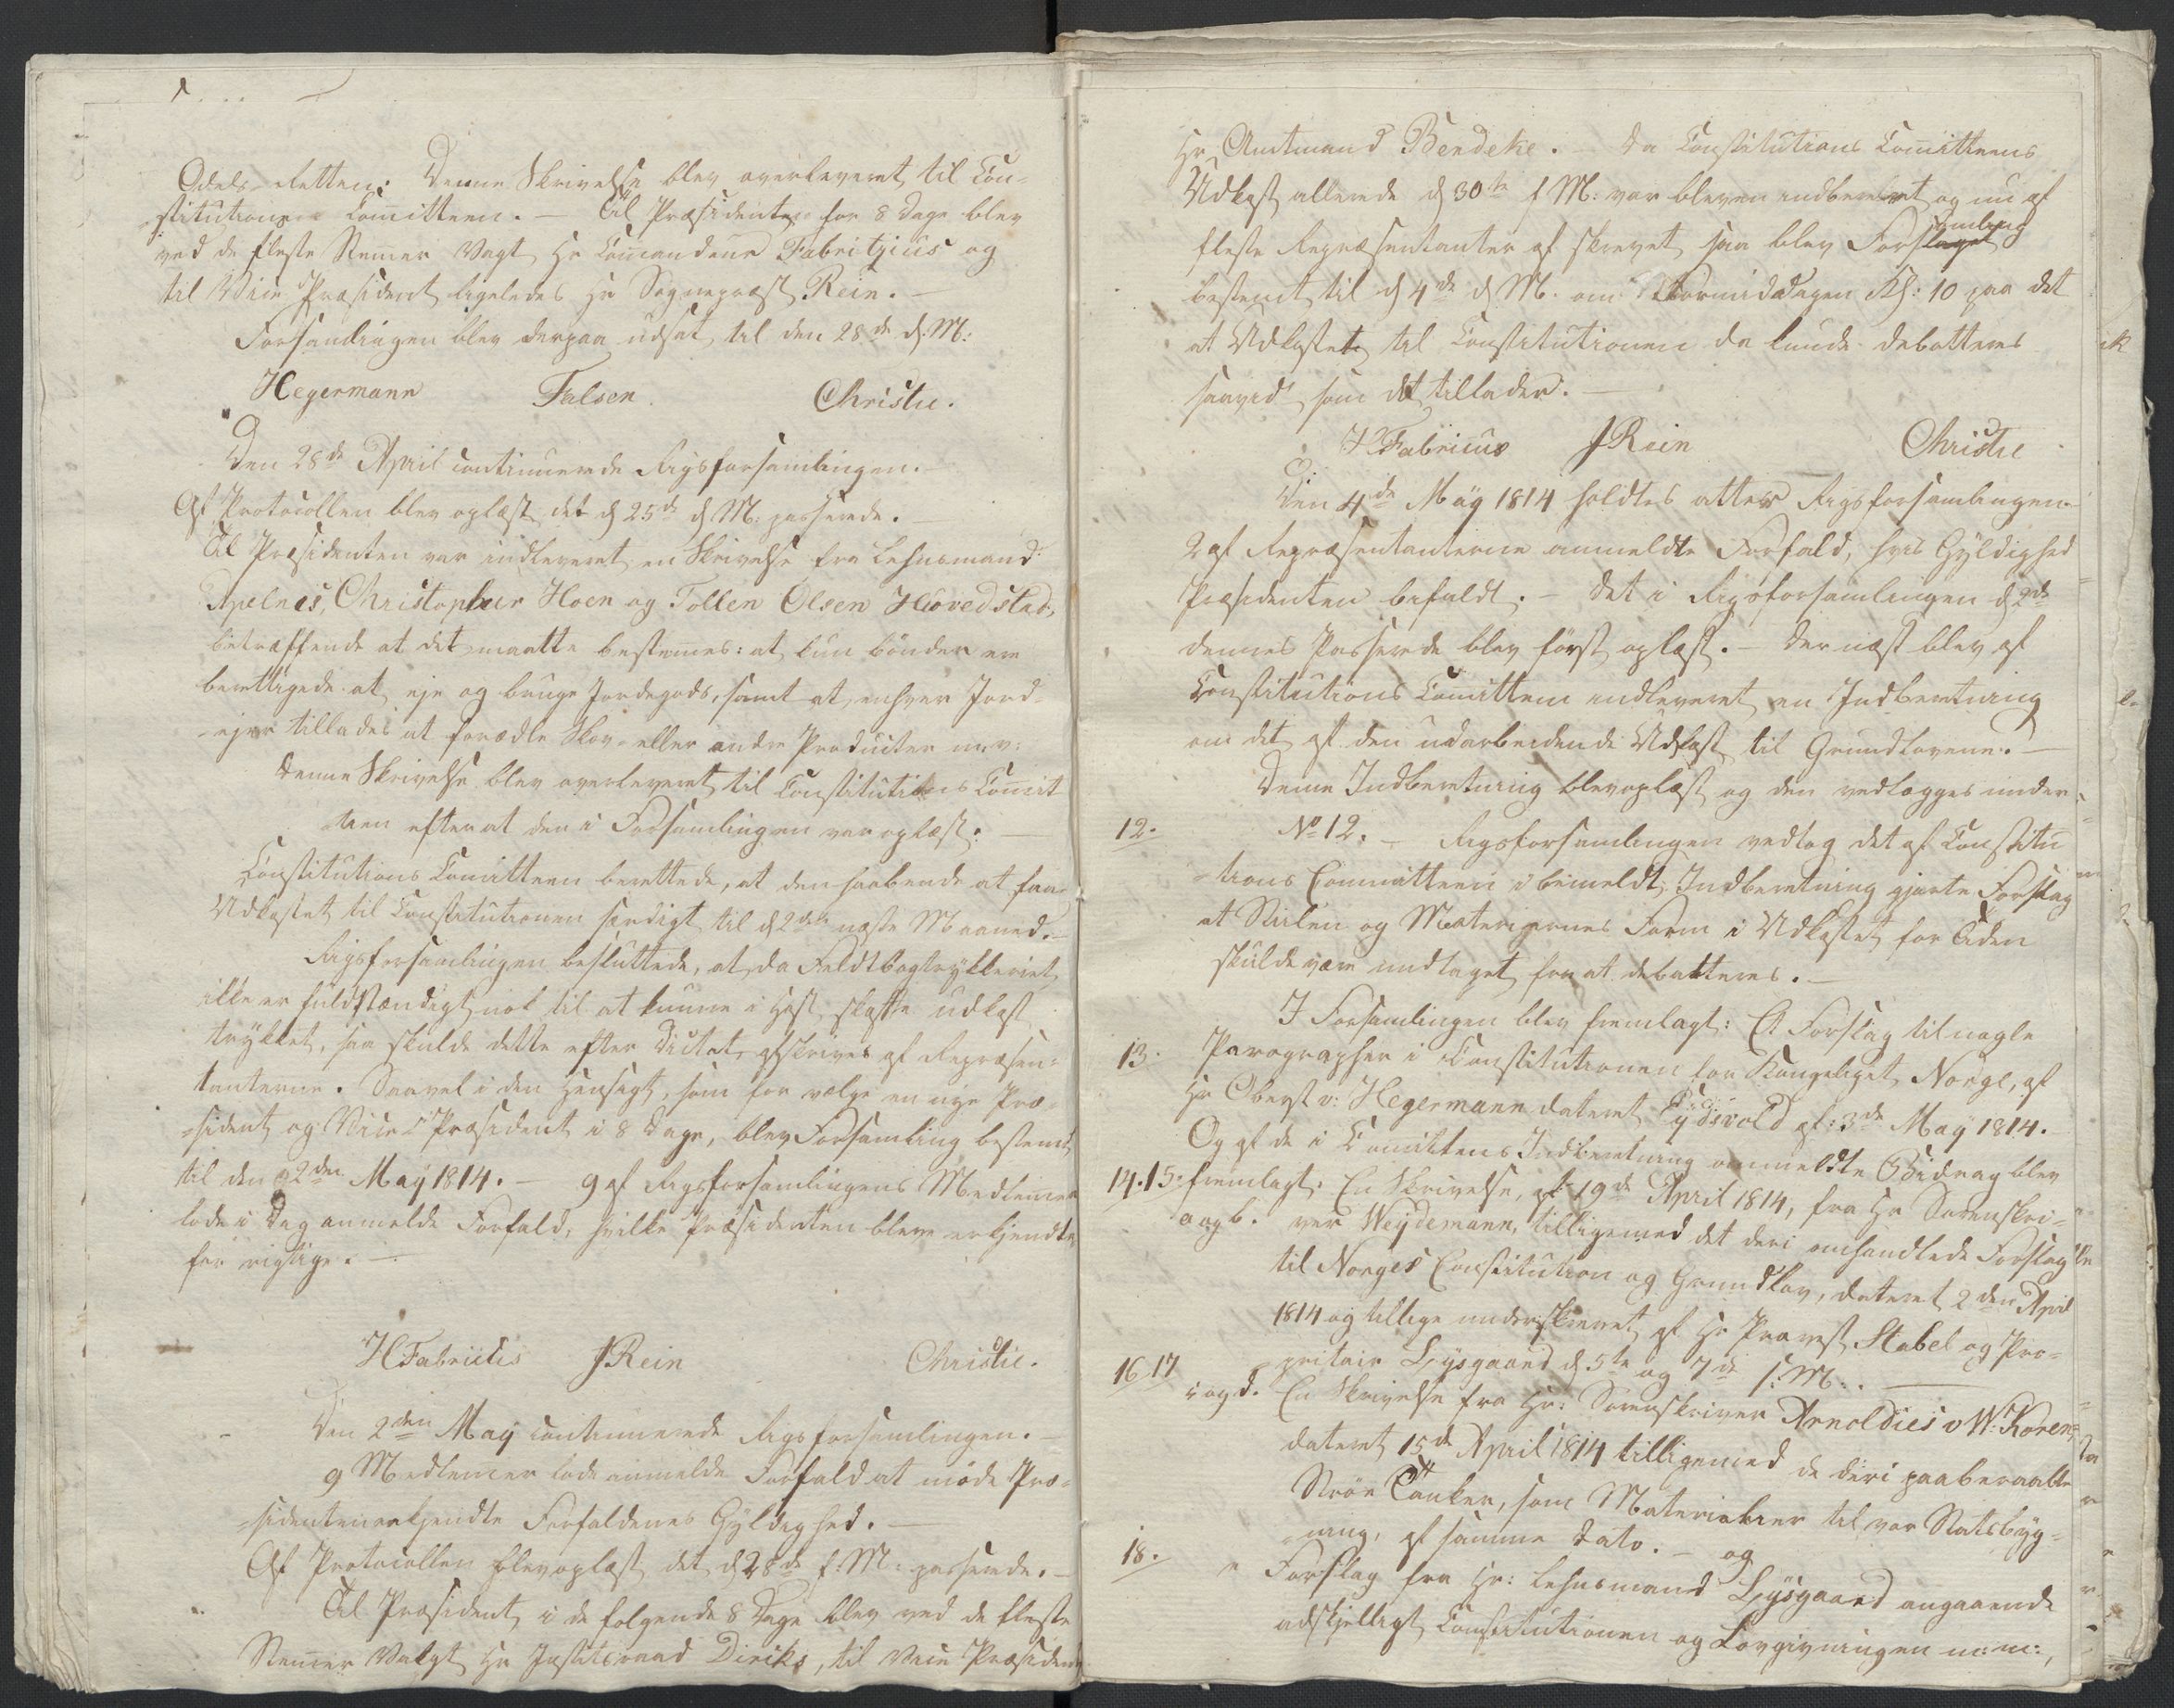 Odels-Retten. Denne Skrivelse blev overleveret til Con-
stitutions Comitteen. — Til Præsident for 8 Dage blev
ved de fleste Stemer Valgt Hr Comandeur Fabritjius og
til Vice Præsident ligeledes Hr Sognepræst Rein. —
Forsamlingen blev derpaa udsat til den 28de d: M:
Hegermann Falsen. Christie.
Den 28de April continuerede Rigsforsamlingen. —
Af Protocollen blev oplæst det d 25de d M: passerede. —
Til Præsidenten var indleveret en Skrivelse fra Lehnsmand
Apelnes, Christopher Hoen og Tollen Olsen Huvedstad,
betræffende at det maatte bestemes: at kun bönder ere
berettigede at eje og bruge Jordegods, samt at enhver Jord-
-ejer tillades at forædle Skov- eller andre Producter m.v:
Denne Skrivelse blev overleveret til Constitutions Comit
teen efterat den i Forsamlingen var oplæst. —
Constitutions Comitteen berettede, at den haabede at faae
Udkastet til Constitutionen færdigt til d 2den næste Maaned. —
Rigsforsamlingen besluttede, at, da Feldtbogtrykkeriet
ikke er fuldstændigt nok til at kunne i Hast skaffe udkast
trÿkket, saa skulde dette efter Dictat afskrives af Repræsen-
tanterne. Saavel i den Hensigt, som for vælge en nye Præ-
-sident og Vice Præsident i 8 Dage, blev Forsamling bestemt
til den 2den Maÿ 1814. — 9 af Rigsforsamlingens Medlemer
lode i Dag anmelde Forfald, hvilke Præsidenten bleve erkjendte
for rigtige. —
H Fabricius JRein Christie.
Den 2den Maÿ continuerede Rigsforsamlingen. —
9 Medlemer lode anmelde Forfald at möde Præ-
-sidenten erkjendte Forfaldenes Gyldighed. —
Af Protocollen blev oplæst det d 28de f: M: passerede. —
Til Præsident i de folgende 8 Dage blev ved de fleste
Stemer Valgt Hr Justitsraad Diriks, til Vice Præsident
Hr Amtmand Bendeke. — Da Constitutions Comitteens
Udkast allerede d 30te f M: var bleven indberettet og nu af
fleste Repræsentanter af skrevet saa blev Forslaget samling
bestemt til d 4de d M. om Formiddagen Kl: 10 paa det
at Udkastet til Constitutionen da kunde debatteres
saavidt som det tillader. —
H Fabricius JRein Christie
Den 4de Maÿ 1814 holdtes atter Rigsforsamlingen. —
2 af Repræsentanterne anmeldte Forfald, hvis Gyldighed
Præsidenten befaldt. — Det i Rigsforsamlingen d 2de
dennes Passerede blev först oplæst. — Der næst blev af
Constitutions Comitteen indleveret en Indberetning
om det af den udarbeidende Udkast til Grundlovene. —
Denne Indberetning blev oplæst og den vedlægges under
12. No 12. — Rigsforsamlingen vedtog det af Constitu
-tions Committeen i bemeldte Indberetning gjorte Forslag
at Stilen og Materiernes Form i Udkastet for Tiden
skulde være undtaget fra at debatteres. —
I Forsamlingen blev fremlagt: Et Forslag til nogle
13. Paragrapher i Constitutionen for Kongeriget Norge, af
Hr Oberst v: Hegermann dateret Eÿdsvold af: 3de Maÿ 1814.
Og af de i Comitteens Indberetning anmeldte Bidrag blev
14.15. fremlagt. En Skrivelse, af 19de April 1814, fra Hr Sorenskri-
a og b. ver Weÿdemann, tilligemed det deri omhandlede Forslag
til Norges Constitution og Grundlov, dateret 2den April
1814 og tillige underskrevet af Hr Provst Stabel og Pro-
pritair Lÿsgaard d 5te og 7de s: M: . —
16 17 c og d. En Skrivelse fra Hr: Sorenskriver Arnoldus v W: Koren,
dateret 15de April 1814 tilligemed de deri paaberaabte
Ströe Tanker, som Materialier til vor Statsbÿg-
-ning, af samme Dato. — og
18. e Forslag fra Hr: Lehnsmand Lÿsgaard angaaende
adskjelligt Constitutionen og Lovgivningen m: m:,